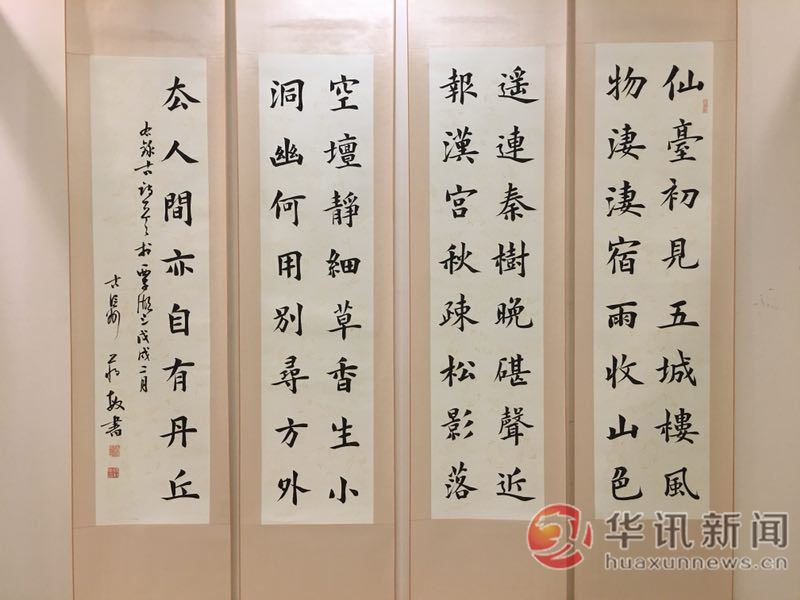 仙臺初見五城樓風
物淒淒宿雨收山色
遥連秦樹晚碪聲近
報漢宫秋疎松影落
空壇靜細草香生小
洞幽何用别尋方外
厺人間亦自有丹丘
戊戌二月
敏書
华讯新闻
huaxunnews.cn